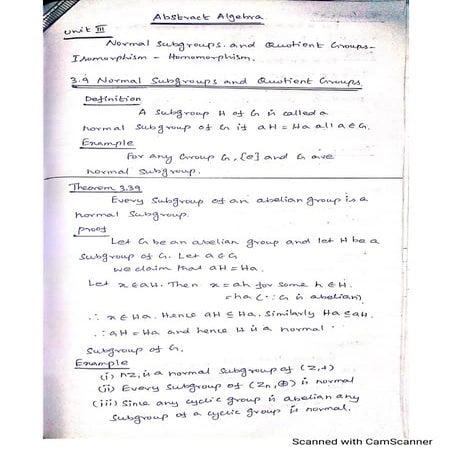 Abstract Algebra
Unit III
Normal Subgroups and Quotient Groups-
Isomorphism - Homomorphism.
3.9 Normal Subgroups and Quotient Groups
Definition
A subgroup H of G is called a
normal Subgroup of G if aH = Ha all a∈G.
Example
For any Group G, {e} and G are
normal Subgroup.
Theorem 3.39
Every Subgroup of an abelian group is a
normal Subgroup.
Proof
Let G be an abelian group and let H be a
Subgroup of G. Let a∈G
we claim that aH = Ha.
Let x∈aH. Then x = ah for some h∈H.
= ha (∵ G is abelian)
∴ x∈Ha. Hence aH ⊆ Ha. Similarly Ha⊆aH.
∴ aH = Ha and hence H is a normal
Subgroup of G.
Example
(i) nZ is a normal Subgroup of (Z,+)
(ii) Every Subgroup of (Zn,⊕) is normal
(iii) Since any cyclic group is abelian any
Subgroup of a cyclic group is normal.
Scanned with CamScanner